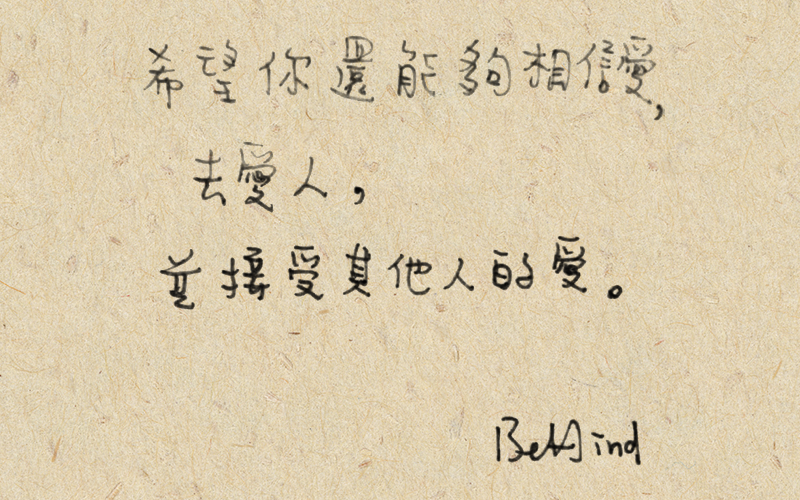 希望你還能夠相信愛,
去愛人,
並接受其他人的愛。